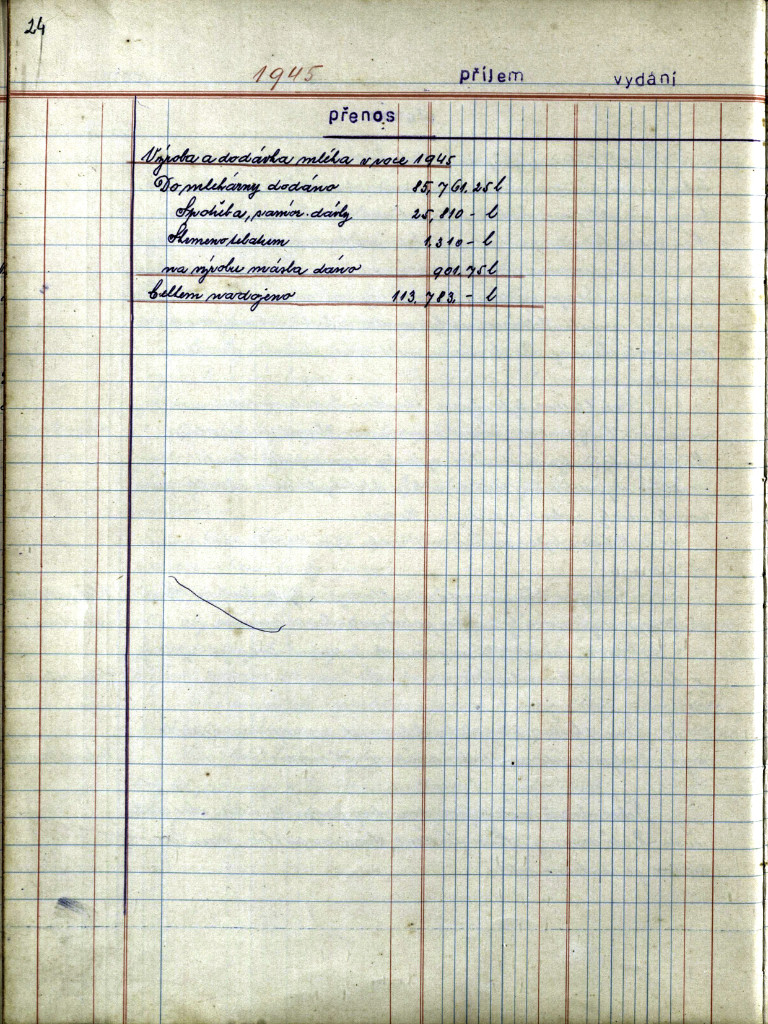 24
1945 příjem vydání
přenos
Výroba a dodávka mléka v roce 1945
Do mlékárny dodáno 85,761.25 l
Spotřeba, samoz. dávky 25,810 - l
1,310 - l
na výrobu másla dáno 901.75 l
Celkem nadojeno 113,783.- l